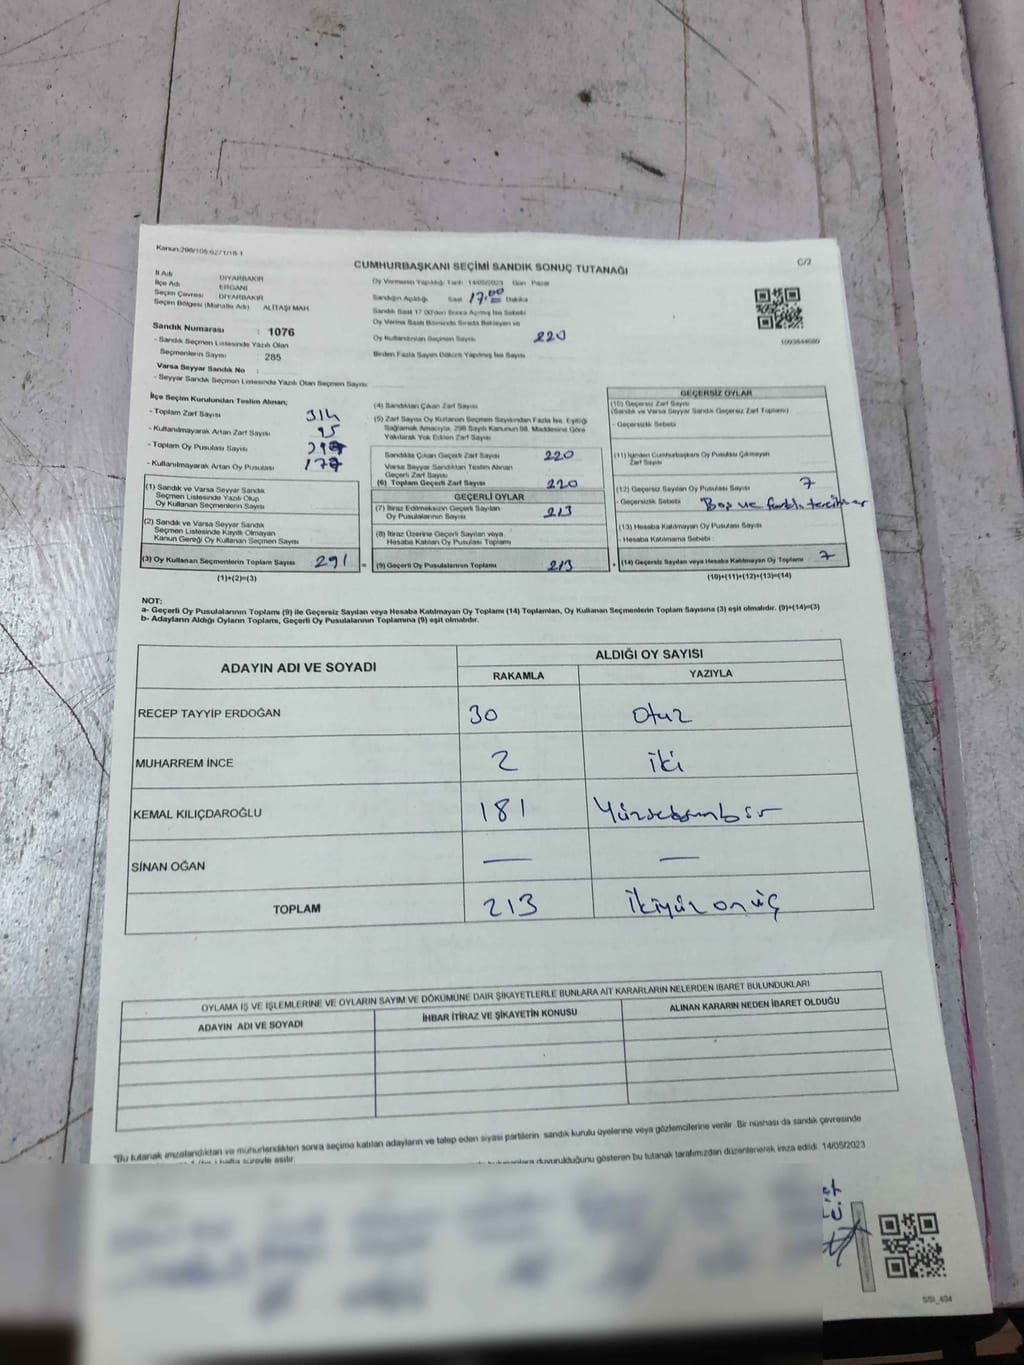 Kanun:298/106:6271/18-1
C/2
CUMHURBAŞKANI SEÇİMİ SANDIK SONUÇ TUTANAĞI
İl Adı : DİYARBAKIR
İlçe Adı : ERGANİ
Seçim Çevresi : DİYARBAKIR
Seçim Bölgesi (Mahalle Adı) : ALİTAŞI MAH.
Oy Vermenin Yapıldığı Tarih: 14/05/2023 Gün: Pazar
Sandığın Açıldığı Saat 17.00 Dakika
Sandık Saat 17:00'den Sonra Açılmış İse Sebebi
Oy Verme Saati Bitiminde Sırada Bekleyen ve
Oy Kullandırılan Seçmen Sayısı 220
Birden Fazla Sayım Döküm Yapılmış İse Sayısı
1093844680
Sandık Numarası : 1076
- Sandık Seçmen Listesinde Yazılı Olan
Seçmenlerin Sayısı : 285
Varsa Seyyar Sandık No :
- Seyyar Sandık Seçmen Listesinde Yazılı Olan Seçmen Sayısı
İlçe Seçim Kurulundan Teslim Alınan;
- Toplam Zarf Sayısı 314
- Kullanılmayarak Artan Zarf Sayısı 95
- Toplam Oy Pusulası Sayısı
- Kullanılmayarak Artan Oy Pusulası
(1) Sandık ve Varsa Seyyar Sandık
Seçmen Listesinde Yazılı Olup
Oy Kullanan Seçmenlerin Sayısı
(2) Sandık ve Varsa Seyyar Sandık
Seçmen Listesinde Kayıtlı Olmayan
Kanun Gereği Oy Kullanan Seçmen Sayısı
(3) Oy Kullanan Seçmenlerin Toplam Sayısı 291 =
(1)+(2)=(3)
(4) Sandıktan Çıkan Zarf Sayısı
(5) Zarf Sayısı Oy Kullanan Seçmen Sayısından Fazla İse, Eşitliği
Sağlamak Amacıyla, 298 Sayılı Kanunun 98. Maddesine Göre
Yakılarak Yok Edilen Zarf Sayısı
Sandıkta Çıkan Geçerli Zarf Sayısı 220
Varsa Seyyar Sandıktan Teslim Alınan
Geçerli Zarf Sayısı
(6) Toplam Geçerli Zarf Sayısı 220
GEÇERLİ OYLAR
(7) İtiraz Edilmeksizin Geçerli Sayılan
Oy Pusulalarının Sayısı 213
(8) İtiraz Üzerine Geçerli Sayılan veya
Hesaba Katılan Oy Pusulası Toplamı
(9) Geçerli Oy Pusulalarının Toplamı 213 +
GEÇERSİZ OYLAR
(10) Geçersiz Zarf Sayısı
(Sandık ve Varsa Seyyar Sandık Geçersiz Zarf Toplamı)
- Geçersizlik Sebebi
(11) İçinden Cumhurbaşkanı Oy Pusulası Çıkmayan
Zarf Sayısı
(12) Geçersiz Sayılan Oy Pusulası Sayısı 7
- Geçersizlik Sebebi : Boş ve farklı tercihler
(13) Hesaba Katılmayan Oy Pusulası Sayısı
- Hesaba Katılmama Sebebi :
(14) Geçersiz Sayılan veya Hesaba Katılmayan Oy Toplamı 7
(10)+(11)+(12)+(13)=(14)
NOT:
a- Geçerli Oy Pusulalarının Toplamı (9) ile Geçersiz Sayılan veya Hesaba Katılmayan Oy Toplamı (14) Toplamları, Oy Kullanan Seçmenlerin Toplam Sayısına (3) eşit olmalıdır. (9)+(14)=(3)
b- Adayların Aldığı Oyların Toplamı, Geçerli Oy Pusulalarının Toplamına (9) eşit olmalıdır.
ADAYIN ADI VE SOYADI
ALDIĞI OY SAYISI
RAKAMLA YAZIYLA
RECEP TAYYİP ERDOĞAN 30 Otuz
MUHARREM İNCE 2 iki
KEMAL KILIÇDAROĞLU 181 Yüzseksenbir
SİNAN OĞAN — —
TOPLAM 213 İkiyüz onüç
OYLAMA İŞ VE İŞLEMLERİNE VE OYLARIN SAYIM VE DÖKÜMÜNE DAİR ŞİKAYETLERLE BUNLARA AİT KARARLARIN NELERDEN İBARET BULUNDUKLARI
ADAYIN ADI VE SOYADI
İHBAR İTİRAZ VE ŞİKAYETİN KONUSU
ALINAN KARARIN NEDEN İBARET OLDUĞU
"Bu tutanak imzalandıktan ve mühürlendikten sonra seçime katılan adayların ve talep eden siyasi partilerin sandık kurulu üyelerine veya gözlemcilerine verilir. Bir nüshası da sandık çevresinde
hafta süreyle asılır.
duyurulduğunu gösteren bu tutanak tarafımızdan düzenlenerek imza edildi. 14/05/2023
SSI_404